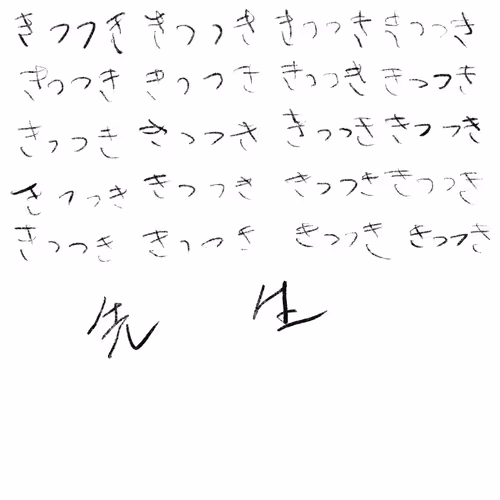 きつつき きつつき きつつき きつつき
きつつき きつつき きつつき きつつき
きつつき きつつき きつつき きつつき
きつつき きつつき きつつき きつつき
きつつき きつつき きつつき きつつき
先生